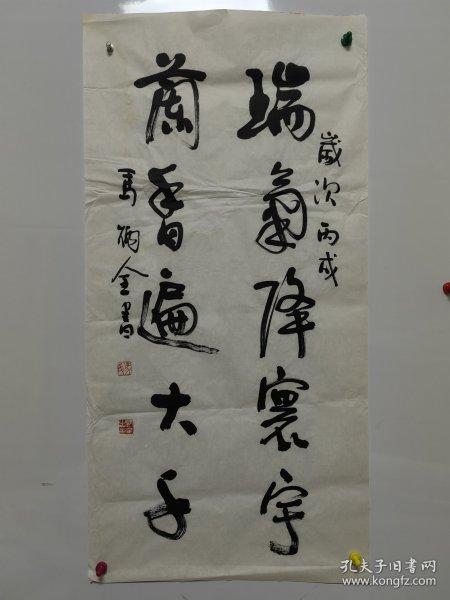 瑞氣降寰宇
蘭香遍大千
歲次丙戌
馬炳全書
孔夫子旧书网
www.kongfz.com